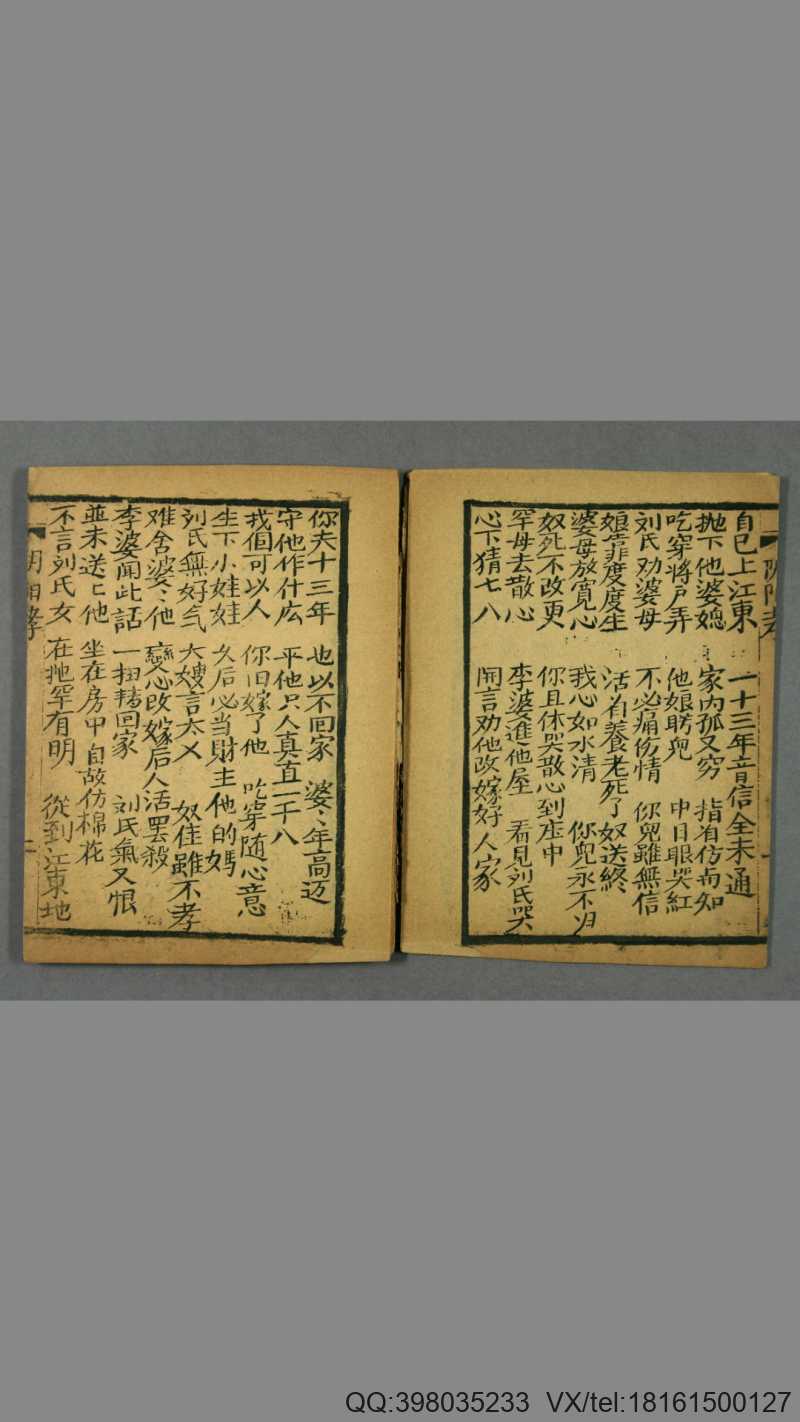 自已上江東 一十三年音信全未通
抛下他婆媳 家内孤又穷 指有仿而知
吃穿將戸弄 他娘盻兒 中日眼哭紅
刘氏劝婆母 不必痛伤情 你兒雖無信
娘靠度度生 活有養老死了奴送終
婆母放寬心 我心如水清 你兒永不归
奴死不改更 你且休哭散心到庄中
罕母去散心 李婆進他屋 看見刘氏哭
心下猜七八 開言劝他改嫁好人家
你夫十三年 也以不回家 婆〻年高迈
守他作什広 平他只人真直一千八
我個可以人 你旧嫁了他 吃穿随心意
生下小娃娃 久后必当財主他的媽
刘氏無好气 大嫂言太乂 奴住雖不孝
难舍婆〻他 變心改嫁后人活罢殺
李婆闻此話 一扭轉回家 刘氏氣又恨
並未送亡他 坐在房中自故仿棉花
不言刘氏女 在把罕有明 從到江東地
阴阳孝